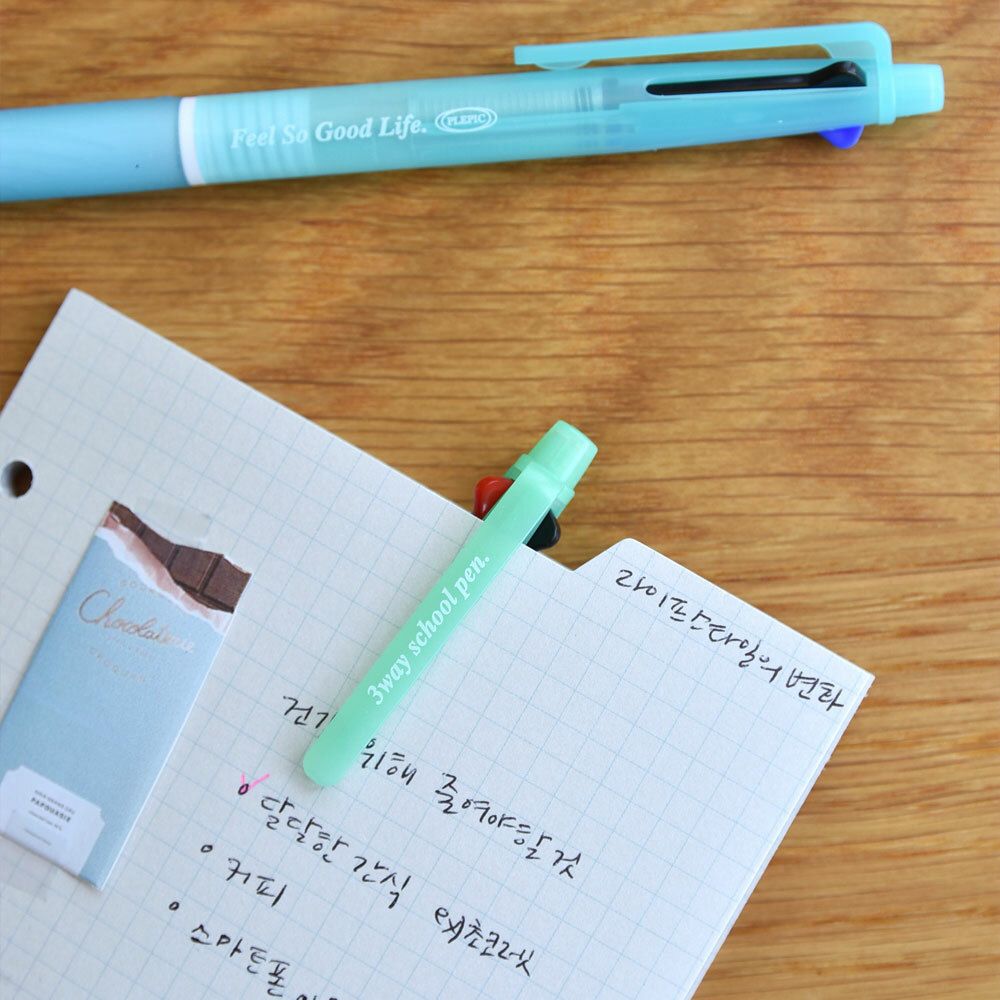 Feel So Good Life. PLEPIC
3way school pen.
라이프스타일의 변화
위해 줄여야할 것
달달한 간식 ex) 초코렛
커피
스마트폰
Chocolaterie
PAPOUASIE